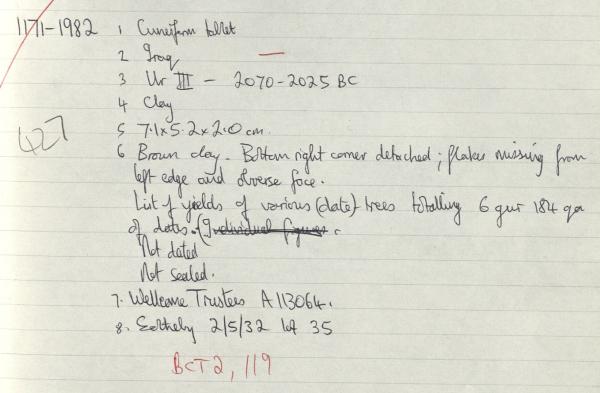 1171-1982 1 Cuneiform tablet
2 Iraq
3 Ur III - 2070-2025 BC
4 Clay
427
5 7.1x5.2x2.0 cm.
6 Brown clay. Bottom right corner detached; flakes missing from
left edge and obverse face.
List of yields of various (date) trees totalling 6 gur 184 qa
of dates. (Individual figures.
Not dated
Not sealed.
7. Wellcome Trustees A113064.
8. Sotheby 2/5/32 lot 35
BCT2, 119